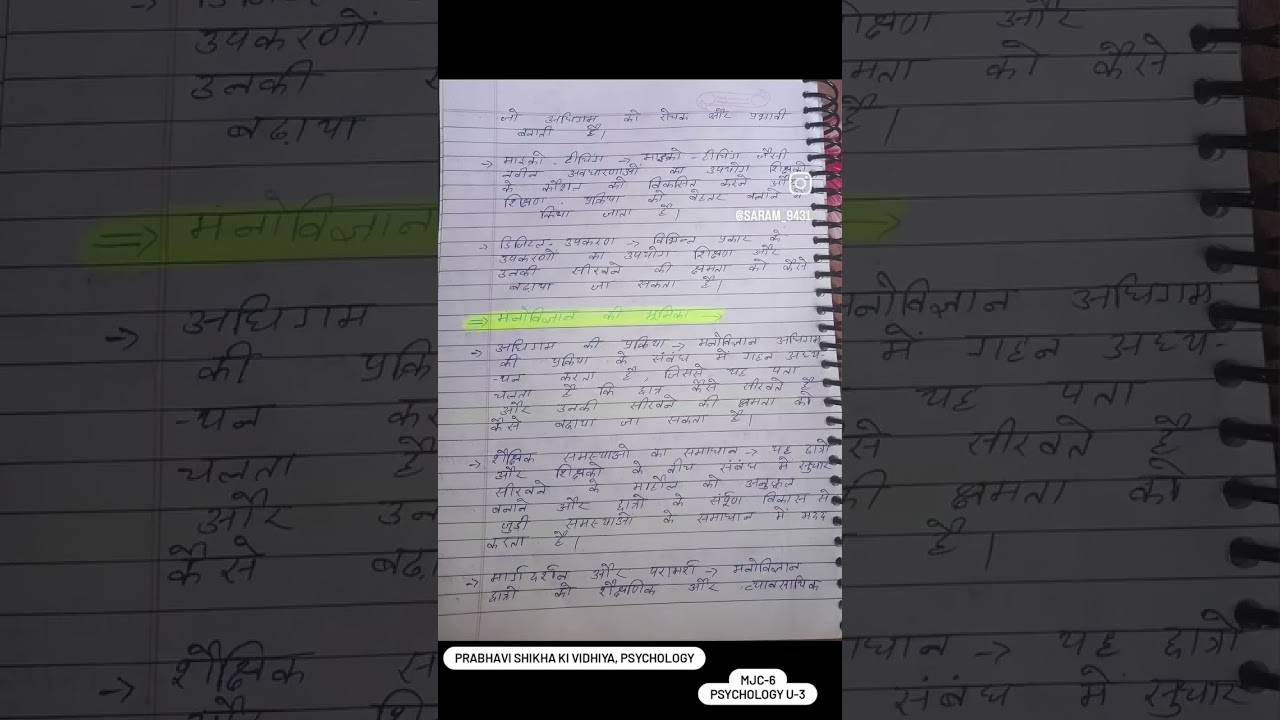 जो अधिगम को रोचक और प्रभावी
बनाती है।
→ माइक्रो - टीचिंग → माइक्रो - टीचिंग जैसी
नवीन अवधारणाओं का उपयोग शिक्षकों
के कौशल को विकसित करने और
शिक्षण प्रक्रिया को बेहतर बनाने में
किया जाता है।
@SARAM_9431
→ डिजिटल- उपकरण → विभिन्न प्रकार के
उपकरणों का उपयोग शिक्षण और
उनकी सीखने की क्षमता को कैसे
बढ़ाया जा सकता है।
⇒ मनोविज्ञान की भूमिका →
→ अधिगम की प्रक्रिया → मनोविज्ञान अधिगम
की प्रक्रिया के संबंध में गहन अध्य-
-यन करता है, जिससे यह पता
चलता है कि छात्र कैसे सीखते है
और उनकी सीखने की क्षमता को
कैसे बढ़ाया जा सकता है।
→ शैक्षिक समस्याओं का समाधान → यह छात्रों
और शिक्षकों के बीच संबंध में सुधार
सीखने के माहौल को अनुकूल
बनाने और छात्रों के संपूर्ण विकास से
जुड़ी समस्याओं के समाधान में मदद
करता है।
→ मार्गदर्शन और परामर्श → मनोविज्ञान
छात्रों को शैक्षणिक और व्यावसायिक
PRABHAVI SHIKHA KI VIDHIYA, PSYCHOLOGY
MJC-6
PSYCHOLOGY U-3